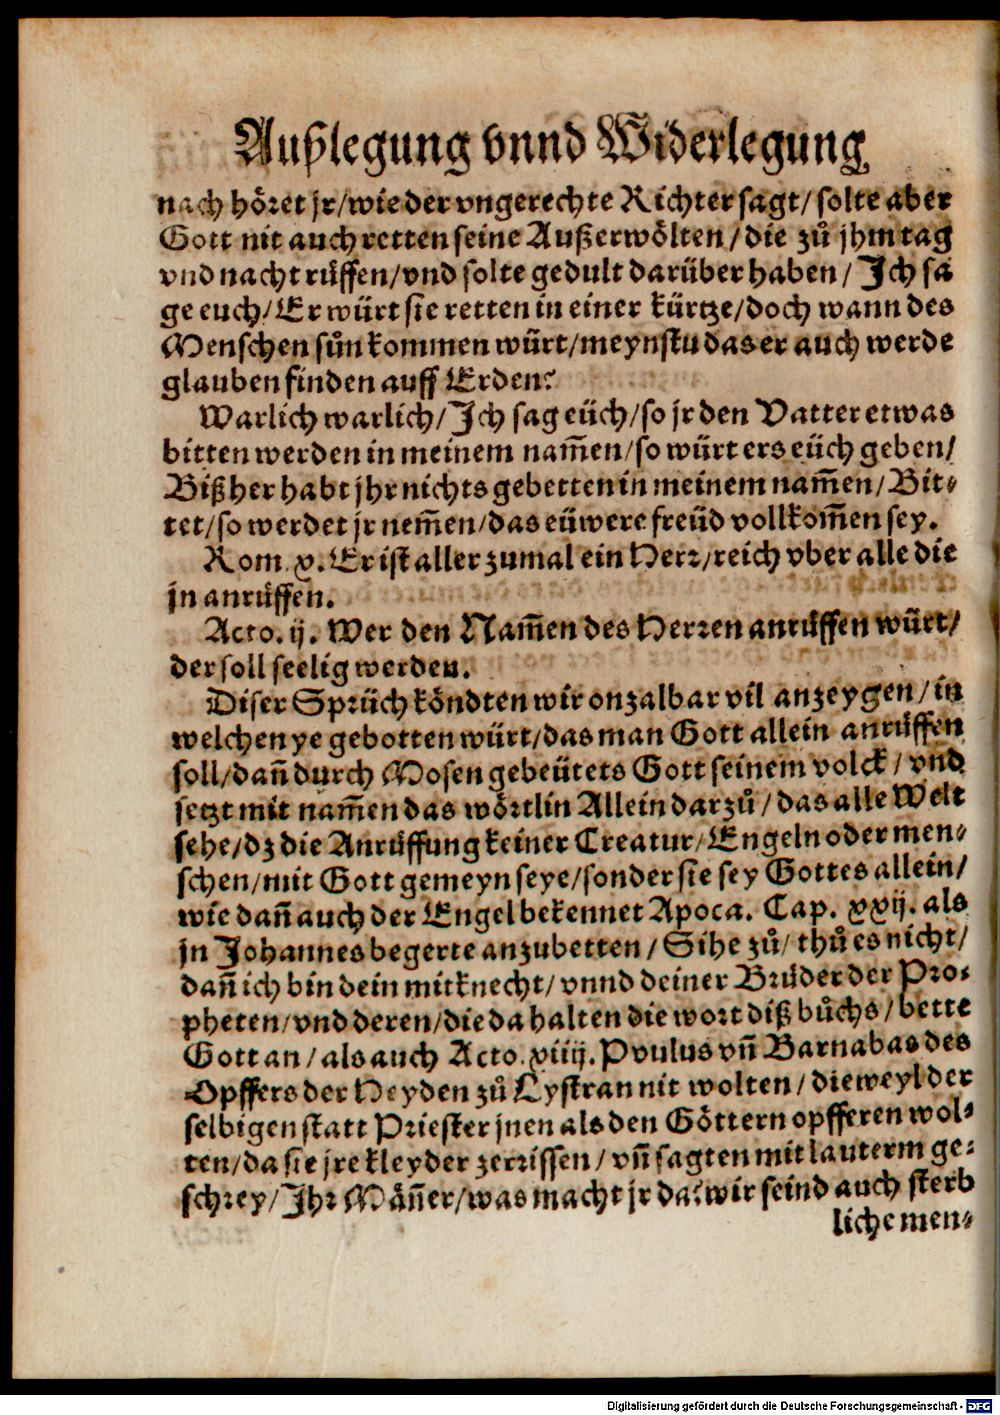 Außlegung vnnd Widerlegung
nach hoͤret jr/wie der vngerechte Richter sagt/solte aber
Gott nit auch retten seine Außerwoͤlten/die zuͦ jhm tag
vnd nacht ruͤffen/vnd solte gedult daruͤber haben/Ich sa
ge euch/Er wuͤrt sie retten in einer kuͤrtze/doch wann des
Menschen suͦn kommen wuͤrt/meynstu das er auch werde
glauben finden auff Erden?
Warlich warlich/Ich sag euͤch/so jr den Vatter etwas
bitten werden in meinem nam̃en/so wuͤrt ers euͤch geben/
Bißher habt jhr nichts gebetten in meinem nam̃en/Bit⸗
tet/so werdet jr nem̃en/das euͤwere freuͤd vollkom̃en sey.
Rom. x. Er ist aller zumal ein Herr/reich vber alle die
jn anruͤffen.
Acto. ij. Wer den Nam̃en des Herren anruͤffen wuͤrt/
der soll seelig werden.
Diser Spruͤch koͤndten wir onzalbar vil anzeygen/in
welchen ye gebotten wuͤrt/das man Gott allein anruͤffen
soll/dañ durch Mosen gebeuͤtets Gott seinem volck/vnd
setzt mit nam̃en das woͤrtlin Allein darzuͦ/das alle Welt
sehe/dz die Anruͤffung keiner Creatur/Engeln oder men⸗
schen/mit Gott gemeyn seye/sonder sie sey Gottes allein/
wie dañ auch der Engel bekennet Apoca. Cap. xxij. als
jn Johannes begerte anzubetten/Sihe zuͦ/thuͦ es nicht/
dañ ich bin dein mitknecht/vnnd deiner Bruͤder der Pro⸗
pheten/vnd deren/die da halten die wort diß buͦchs/bette
Gott an/als auch Acto. xiiij. Pvulus vñ Barnabas des
Opffers der Heyden zuͦ Lystran nit wolten/dieweyl der
selbigen statt Priester jnen als den Goͤttern opfferen wol⸗
ten/da sie jre kleyder zerrissen/vñ sagten mit lauterm ge⸗
schrey/Ihr Mäñer/was macht jr da? wir seind auch sterb
liche men⸗
Digitalisierung gefördert durch die Deutsche Forschungsgemeinschaft - DFG